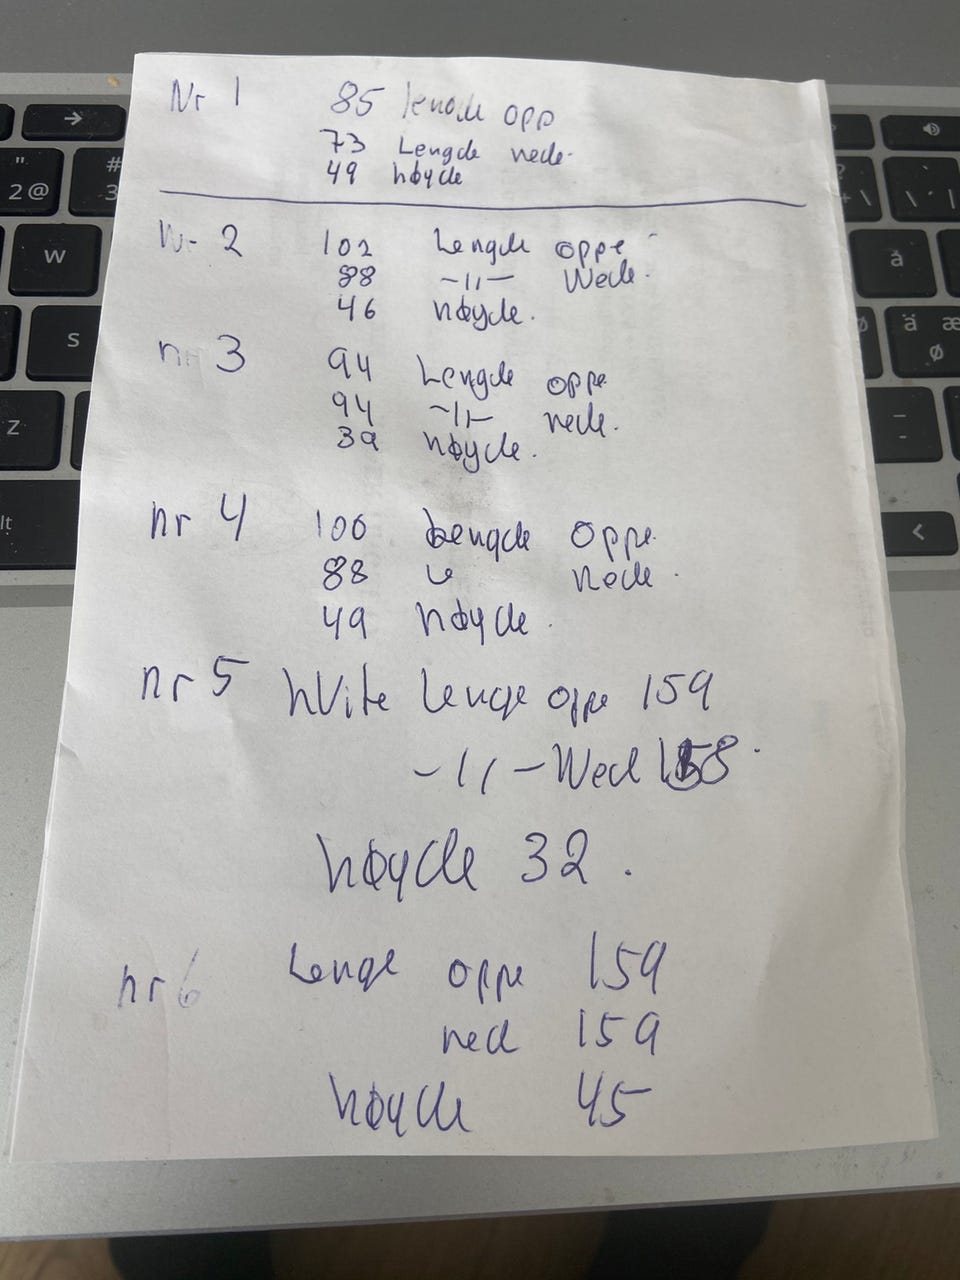 Nr 1 85 lengde opp
73 Lengde nede.
49 høyde
Nr 2 102 Lengde oppe
88 -11- Nede.
46 høyde.
nr 3 94 Lengde oppe
94 -11- nede.
39 høyde.
nr 4 100 Lengde oppe.
88 " Nede.
49 høyde.
nr 5 hvite Lenge oppe 159
-11- Ned 158.
høyde 32.
nr 6 Lenge oppe 159
ned 159
høyde 45